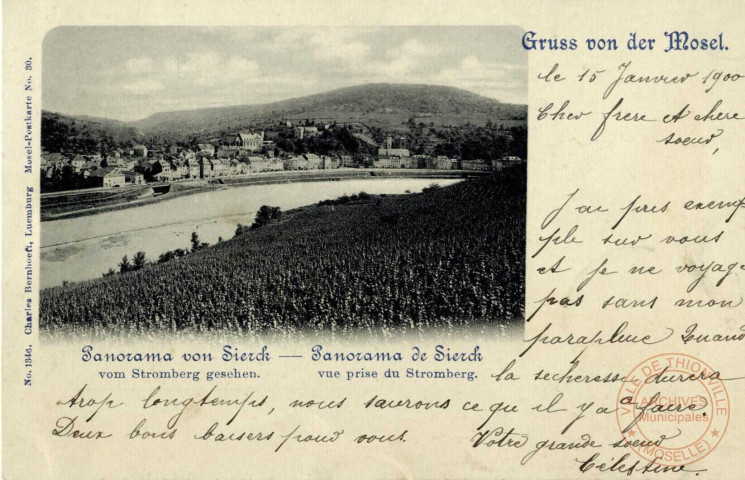 Gruss von der Mosel.
le 15 Janvier 1900
Cher frere et chere
soeur,
J'ai pris exem
ple sur vous
et je ne voyage
pas sans mon
parapluie Quand
la secheresse durera
trop longtemps, nous saurons ce qu'il y a à faire.
Deux bons baisers pour vous.
Votre grande soeur
Célestine.
Panorama von Sierck — Panorama de Sierck
vom Stromberg gesehen. vue prise du Stromberg.
No. 1346. Charles Bernhoeft, Luxemburg Mosel-Postkarte No. 30.
VILLE DE THIONVILLE
ARCHIVES
Municipales
(MOSELLE)